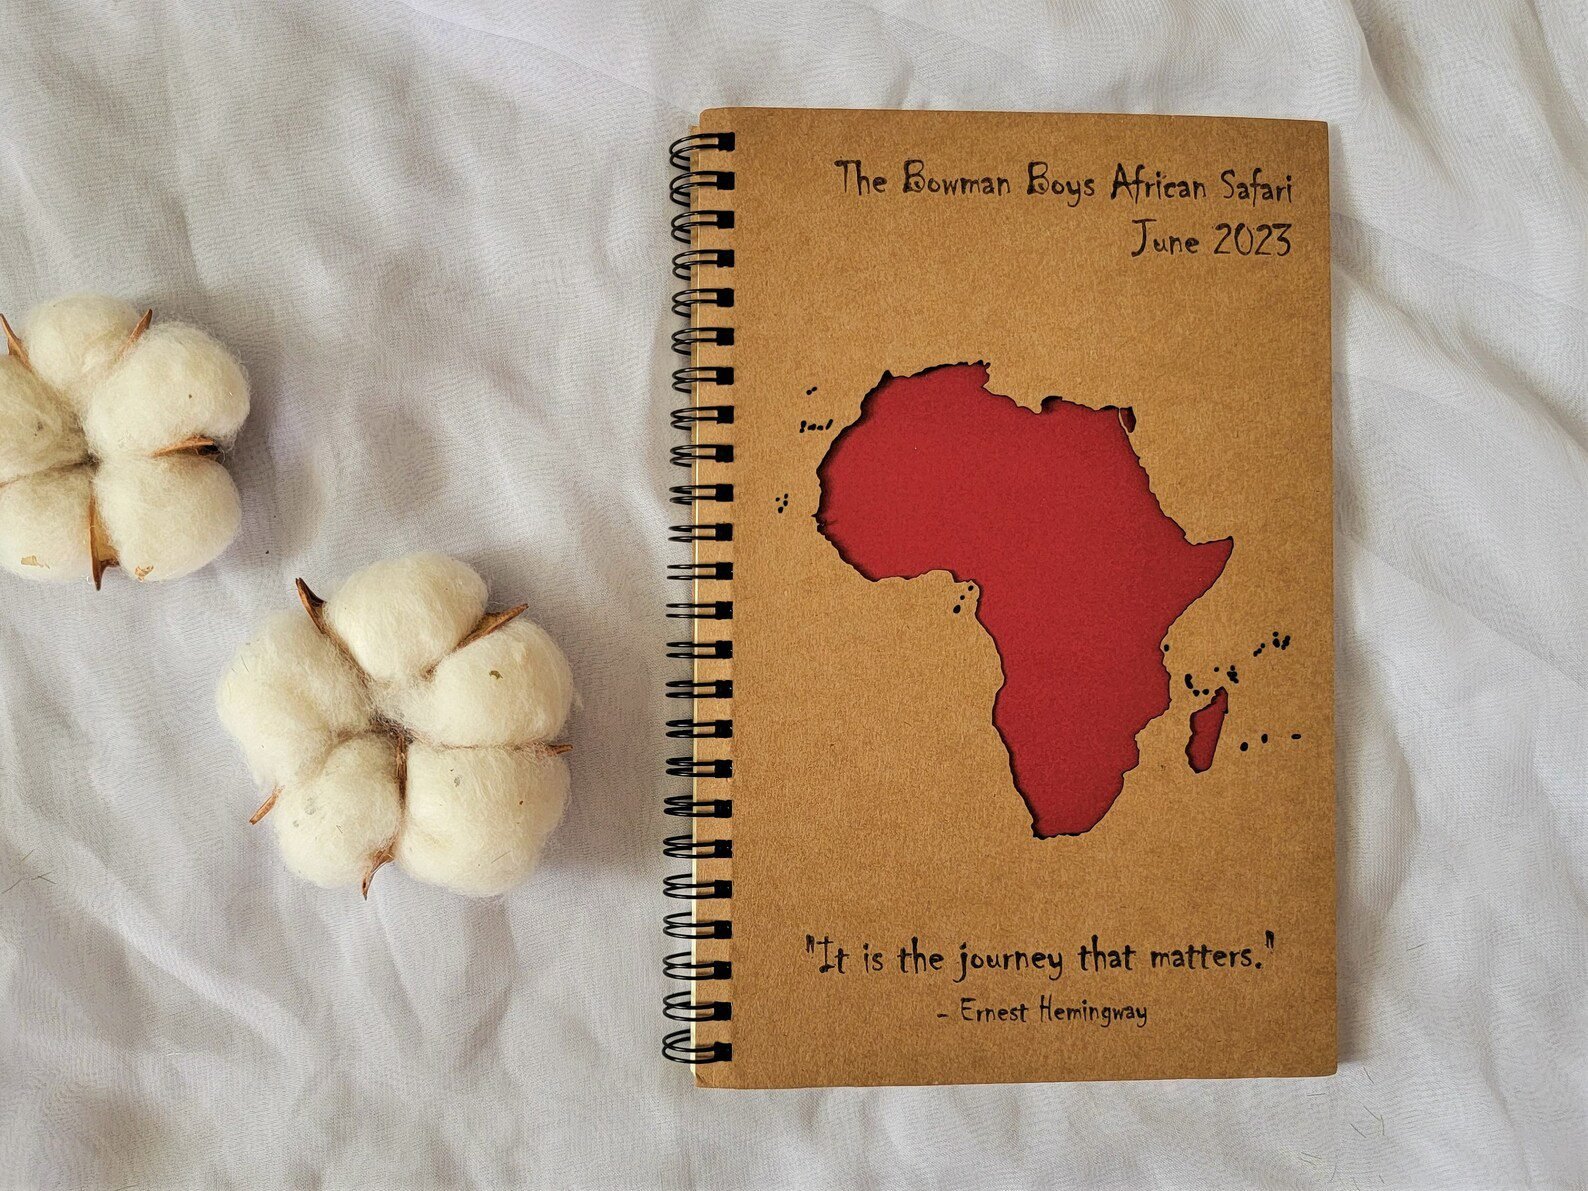 The Bowman Boys African Safari
June 2023
"It is the journey that matters."
- Ernest Hemingway